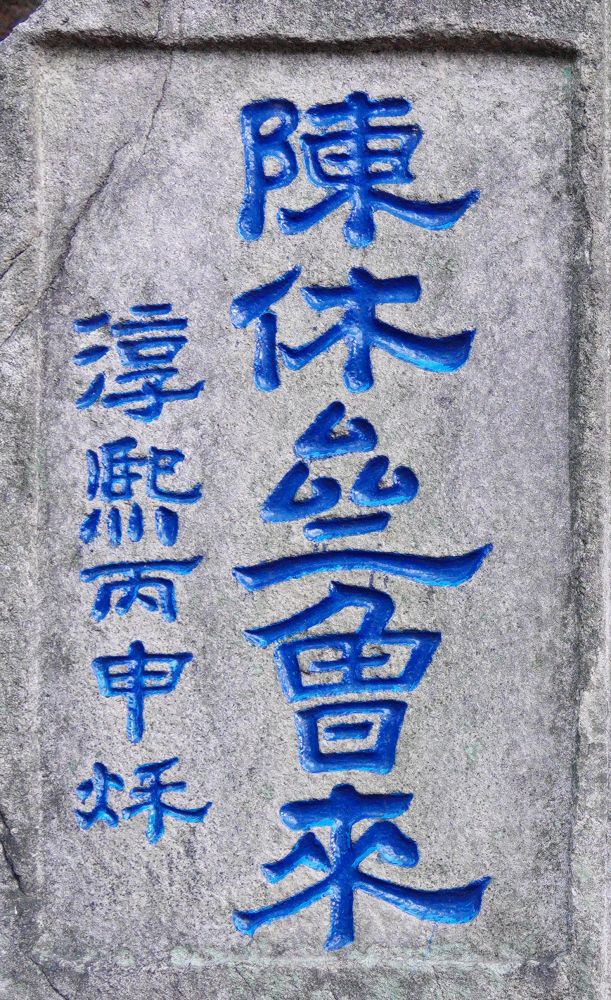 陳休齊曾來
淳熙丙申秌